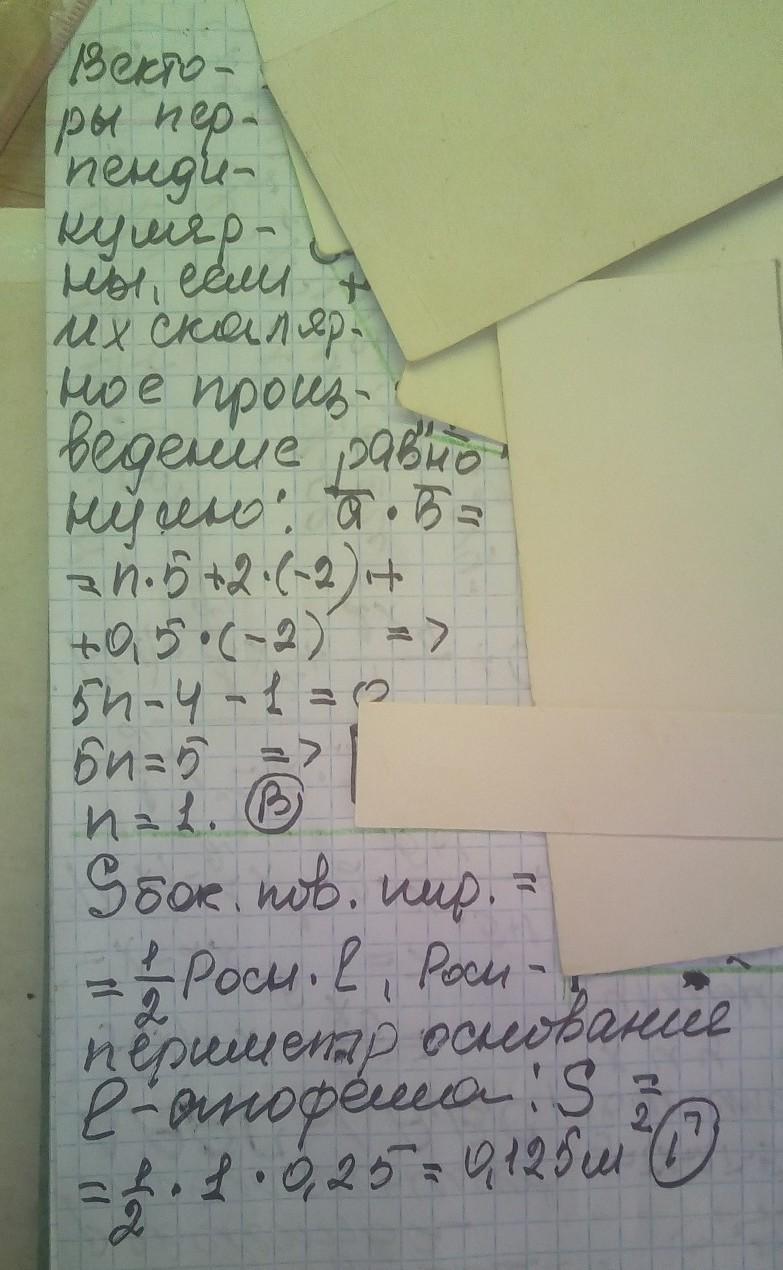 Векто-
ры пер-
пенди-
куляр-
ны, если +
их скаляр-
ное произ-
ведение равно
нулю: a̅ · b̅ =
= n·5 + 2·(-2) +
+ 0,5·(-2) =>
5n - 4 - 1 = 0
5n = 5 =>
n = 1. В
Sбок. пов. пир. =
= 1/2 Pосн · l, Pосн -
периметр основание
l - апофема: S =
= 1/2 · 1 · 0,25 = 0,125м² Г